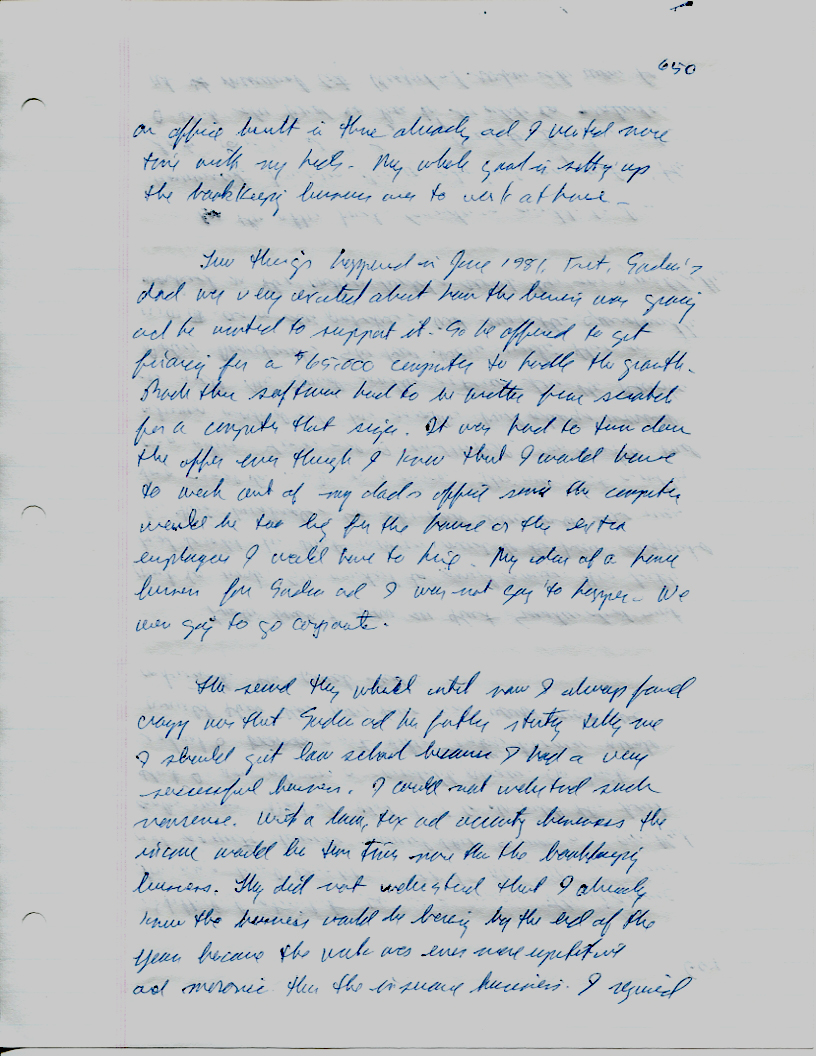 650
an office built in there already and I wanted more
time with my kids. My whole goal in setting up
the bookkeeping business was to work at home.
Two things happened in June 1981. First, 's
dad was very excited about how the business was going
and he wanted to support it. So he offered to get
financing for a $65,000 computer to handle the growth.
the software had to be written from scratch
for a computer that size. It was hard to turn down
the offer even though I knew that I would have
to work out of my dad's office since the computer
would be too big for the house or the extra
employees I would have to hire. My idea of a home
business for and I was not going to happen. We
were going to go corporate.
The second thing which until now I always found
crazy was that and her father starting telling me
I should quit law school because I had a very
successful business. I could not understand such
nonsense. With a law, tax and accounting business the
income would be ten times more than the bookkeeping
business. They did not understand that I already
knew the business would be boring by the end of the
year because the work was even more repetitive
and moronic than the insurance business. I required